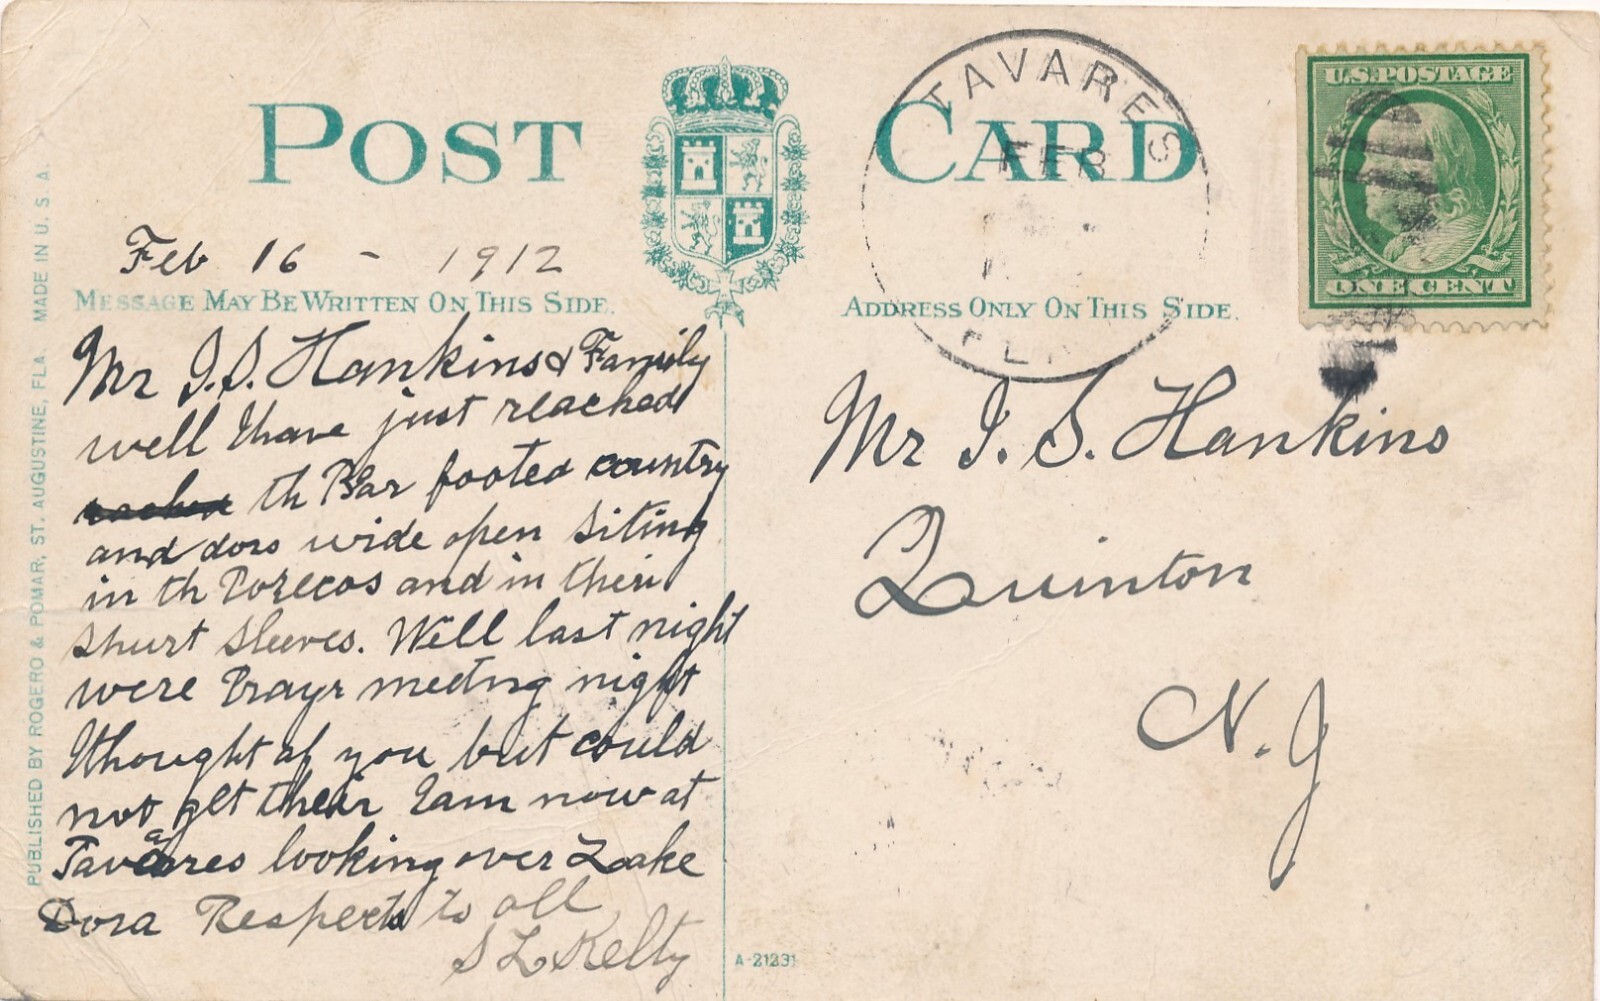 POST CARD
TAVARES
FEB
FLA
U.S. POSTAGE
ONE CENT
Feb 16 - 1912
MESSAGE MAY BE WRITTEN ON THIS SIDE.
ADDRESS ONLY ON THIS SIDE.
Mr I. S. Hankins & Family
well I have just reached
th Bar footed country
and dors wide open siting
in th Porecos and in their
shurt sleeves. Well last night
were Prayr meeting night
I thought of you but could
not get their I am now at
Tavaares looking over Lake
Dora Respects to all
S L Kelty
Mr I. S. Hankins
Quinton
N. J
PUBLISHED BY ROGERO & POMAR, ST. AUGUSTINE, FLA. MADE IN U. S. A.
A-21231